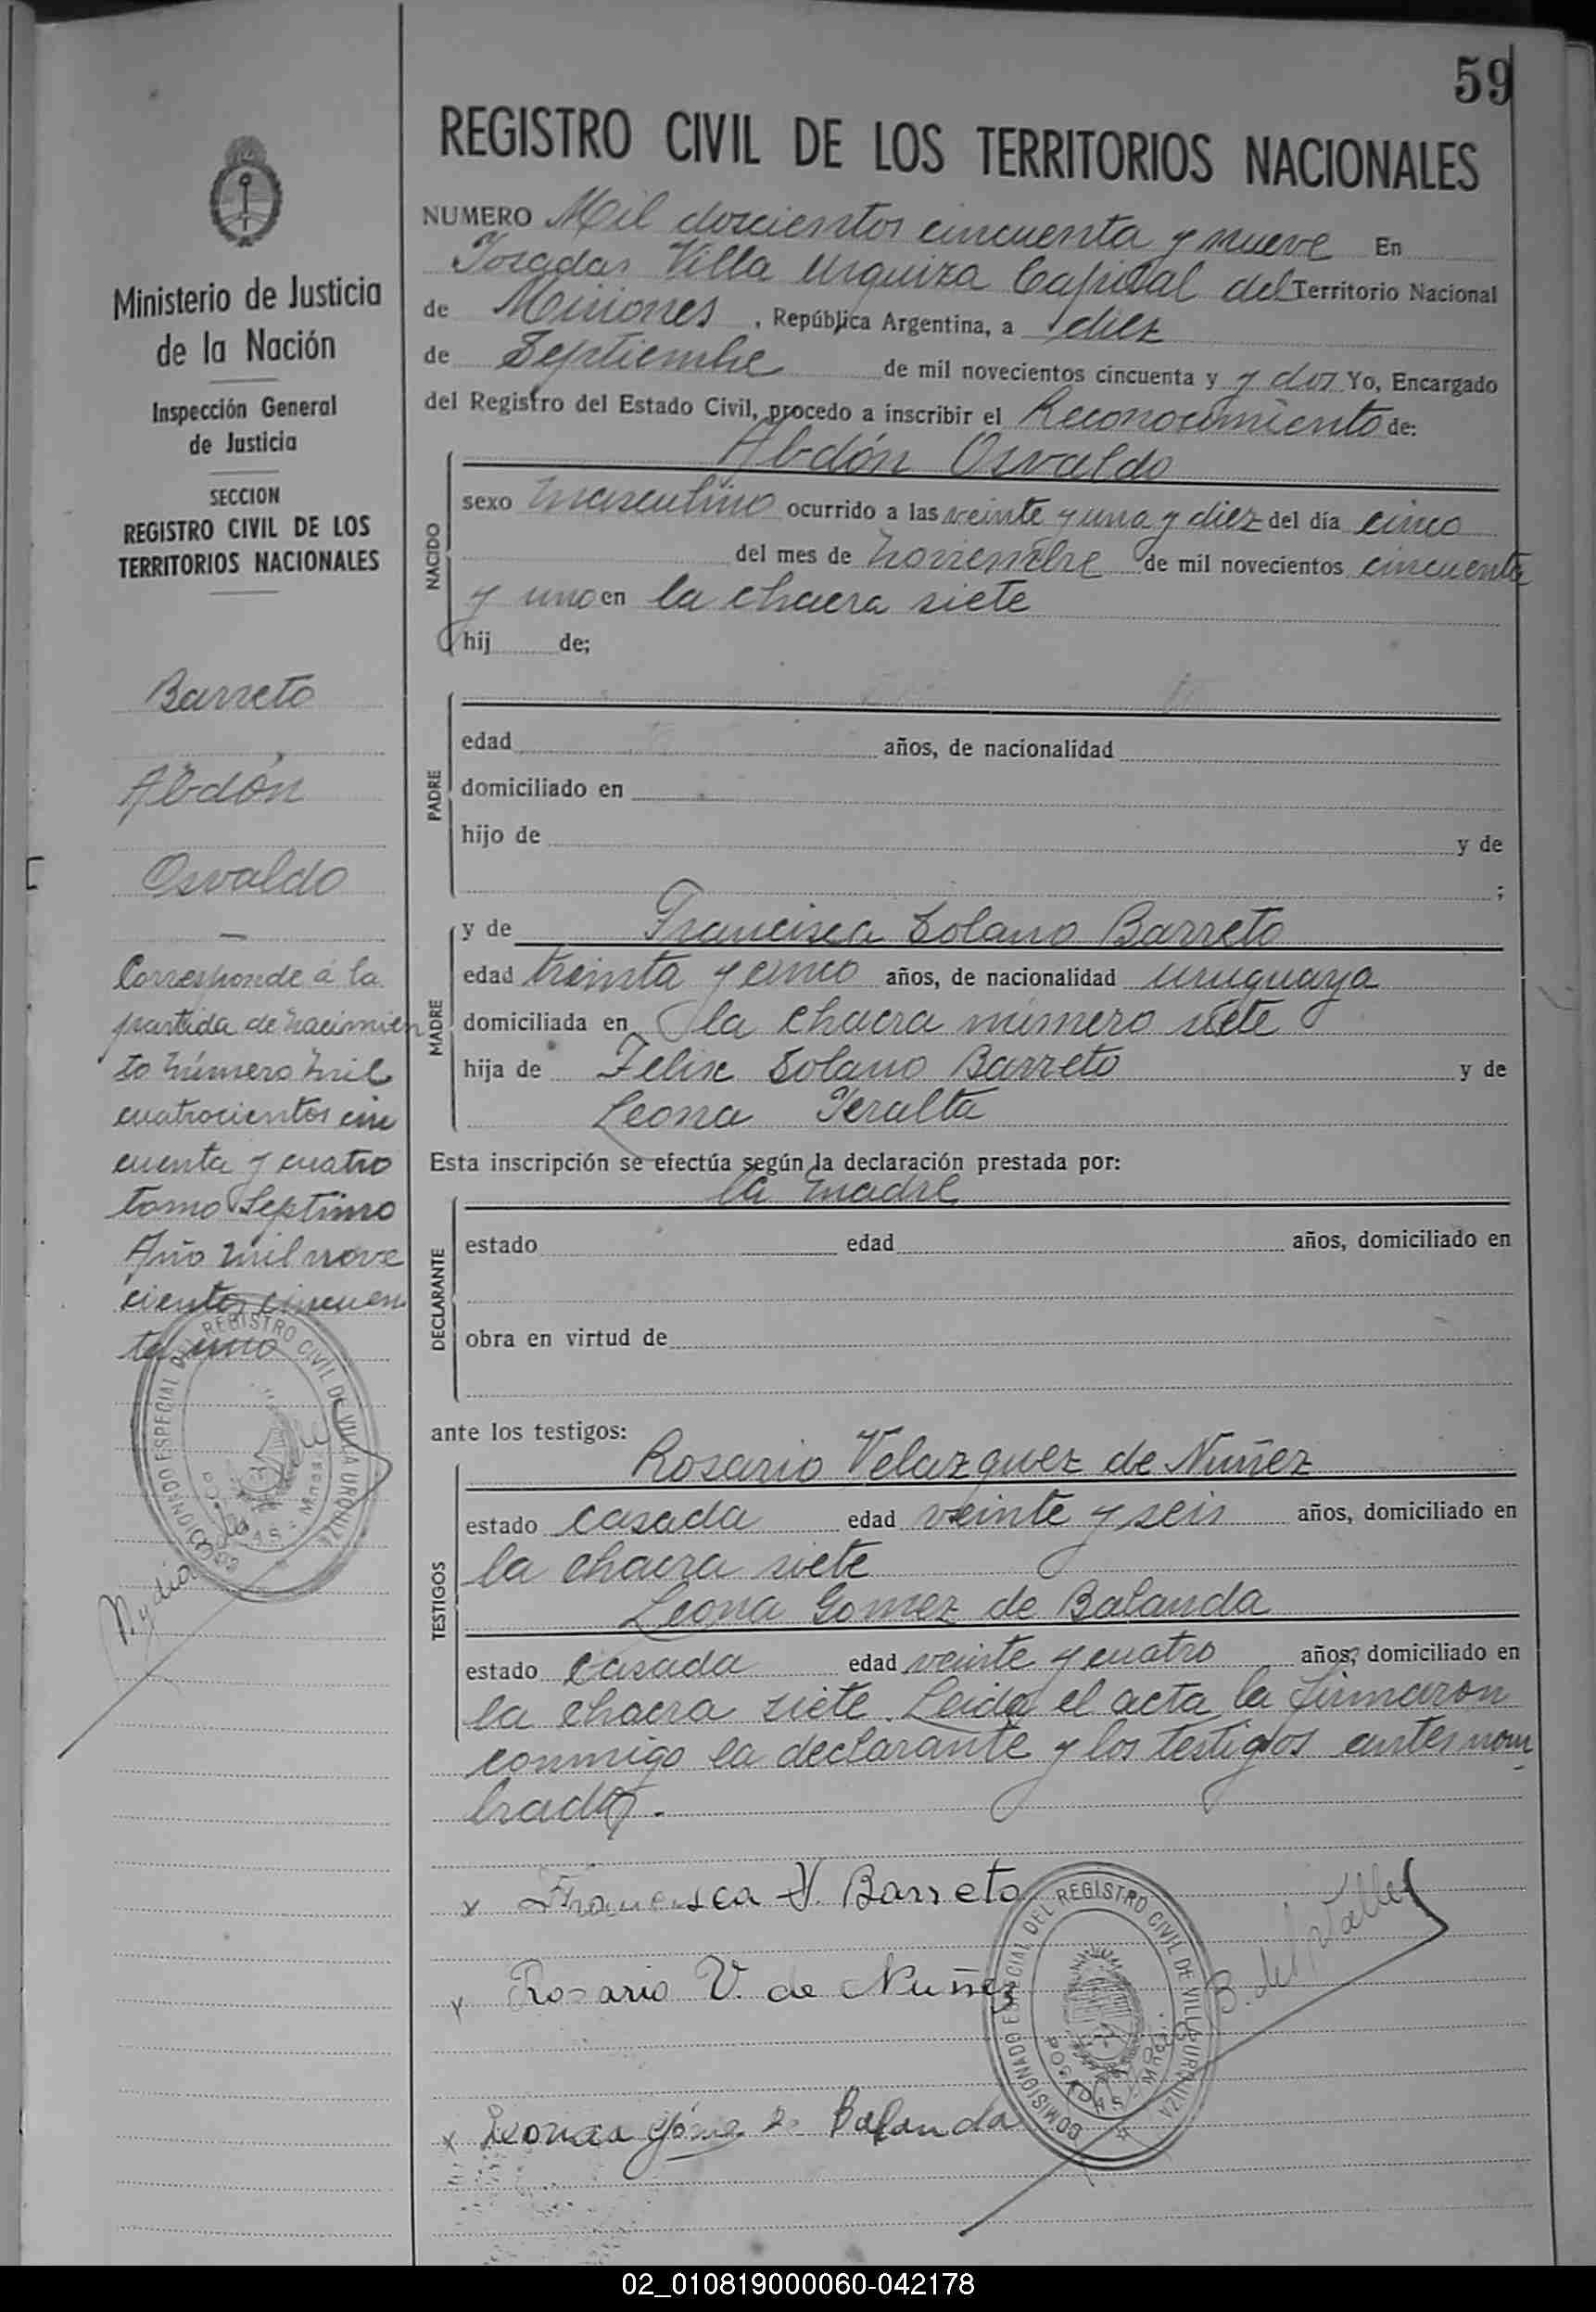 59
REGISTRO CIVIL DE LOS TERRITORIOS NACIONALES
NUMERO Mil doscientos cincuenta y nueve En
Posadas Villa Urquiza Capital del Territorio Nacional
de Misiones , República Argentina, a diez
de Septiembre de mil novecientos cincuenta y y dos Yo, Encargado
del Registro del Estado Civil, procedo a inscribir el Reconocimiento de:
Abdón Osvaldo
NACIDO
sexo masculino ocurrido a las veinte y una y diez del día cinco
del mes de noviembre de mil novecientos cincuenta
y uno en la chacra siete
hij de;
PADRE
edad años, de nacionalidad
domiciliado en
hijo de y de
;
MADRE
y de Francisca Solano Barreto
edad treinta y cinco años, de nacionalidad uruguaya
domiciliada en la chacra número siete
hija de Felix Solano Barreto y de
Leona Peralta
Esta inscripción se efectúa según la declaración prestada por:
la madre
DECLARANTE
estado edad años, domiciliado en
obra en virtud de
ante los testigos:
TESTIGOS
Rosario Velazquez de Nuñez
estado casada edad veinte y seis años, domiciliado en
la chacra siete
Leona Gomez de Balanda
estado casada edad veinte y cuatro años, domiciliado en
la chacra siete. Leida el acta la firmaron
conmigo la declarante y los testigos antes nom
brados.
x Francisca S. Barreto
x Rosario V. de Nuñez
x Leonaa Góme de Balanda
B. del Valle
COMISIONADO ESPECIAL DEL REGISTRO CIVIL DE VILLA URQUIZA
POSADAS - Mnes.
Ministerio de Justicia
de la Nación
Inspección General
de Justicia
SECCION
REGISTRO CIVIL DE LOS
TERRITORIOS NACIONALES
Barreto
Abdón
Osvaldo
Corresponde á la
partida de nacimien
to número mil
cuatrocientos cin
cuenta y cuatro
tomo Septimo
Año mil nove
cientos cincuen
ta uno
COMISIONADO ESPECIAL DEL REGISTRO CIVIL DE VILLA URQUIZA
Nydia B.
02_010819000060-042178